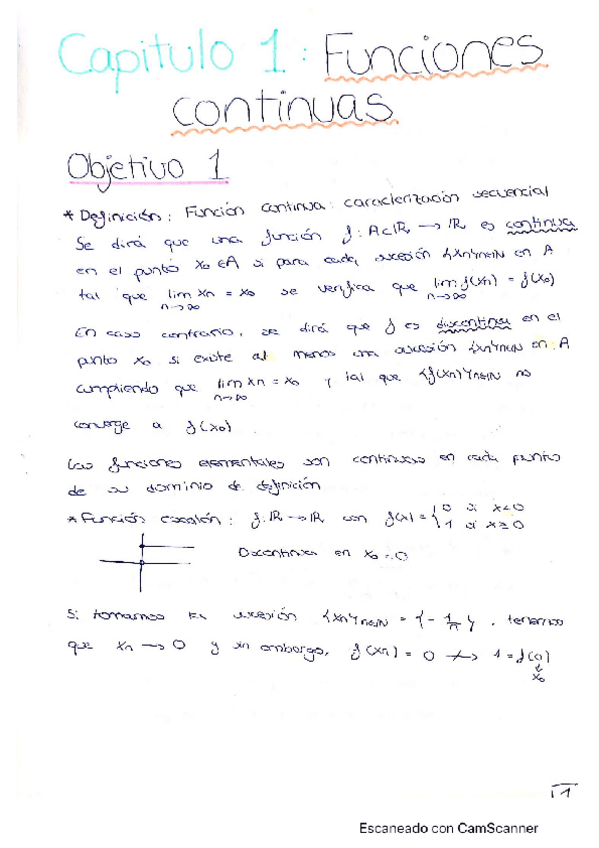 Capitulo 1: Funciones
continuas
Objetivo 1
* Definición: Función continua: caracterización secuencial
Se dirá que una función f: A⊂ℝ → ℝ es continua
en el punto x₀ ∈ A si para cada sucesión {xn}n∈ℕ en A
tal que lim n→∞ xn = x₀ se verifica que lim n→∞ f(xn) = f(x₀)
En caso contrario, se dirá que f es discontinua en el
punto x₀ si existe al menos una sucesión {xn}n∈ℕ en A
cumpliendo que lim n→∞ xn = x₀ y tal que {f(xn)}n∈ℕ no
converge a f(x₀)
Las funciones elementales son continuas en cada punto
de su dominio de definición
* Función escalón: f: ℝ → ℝ con f(x) = { 0 si x<0
1 si x≥0
Discontinua en x₀=0
Si tomamos la sucesión {xn}n∈ℕ = {-1/n}, tenemos
que xn → 0 y sin embargo, f(xn) = 0 ↛ 1 = f(0)
x₀
1
Escaneado con CamScanner